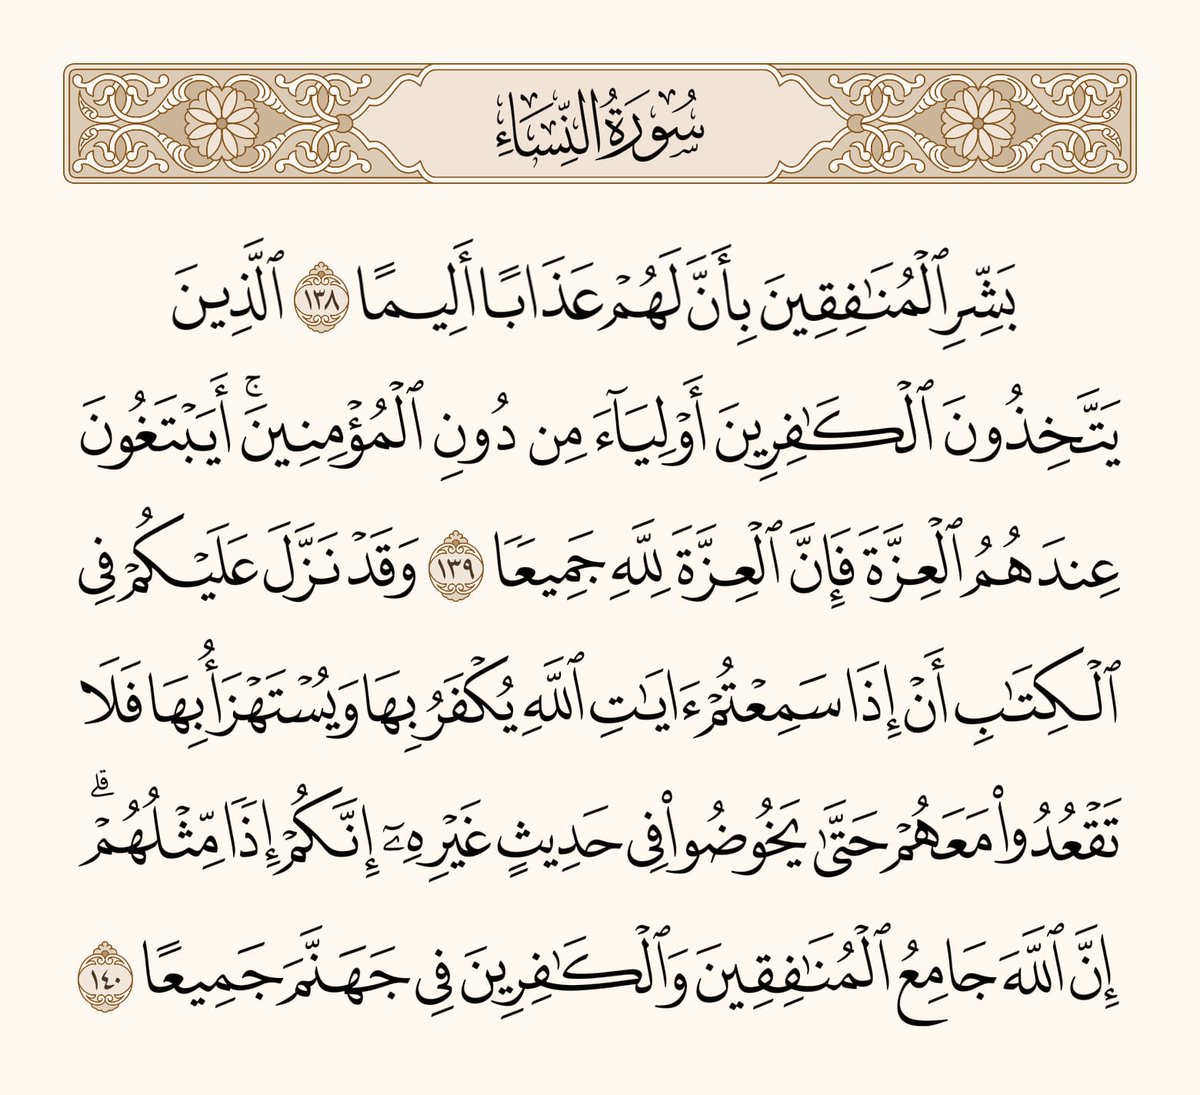 سُورَةُ النِّسَاءِ
بَشِّرِ ٱلْمُنَـٰفِقِينَ بِأَنَّ لَهُمْ عَذَابًا أَلِيمًا ١٣٨ ٱلَّذِينَ
يَتَّخِذُونَ ٱلْكَـٰفِرِينَ أَوْلِيَآءَ مِن دُونِ ٱلْمُؤْمِنِينَ ۚ أَيَبْتَغُونَ
عِندَهُمُ ٱلْعِزَّةَ فَإِنَّ ٱلْعِزَّةَ لِلَّهِ جَمِيعًا ١٣٩ وَقَدْ نَزَّلَ عَلَيْكُمْ فِى
ٱلْكِتَـٰبِ أَنْ إِذَا سَمِعْتُمْ ءَايَـٰتِ ٱللَّهِ يُكْفَرُ بِهَا وَيُسْتَهْزَأُ بِهَا فَلَا
تَقْعُدُوا۟ مَعَهُمْ حَتَّىٰ يَخُوضُوا۟ فِى حَدِيثٍ غَيْرِهِۦٓ إِنَّكُمْ إِذًا مِّثْلُهُمْ ۗ
إِنَّ ٱللَّهَ جَامِعُ ٱلْمُنَـٰفِقِينَ وَٱلْكَـٰفِرِينَ فِى جَهَنَّمَ جَمِيعًا ١٤٠